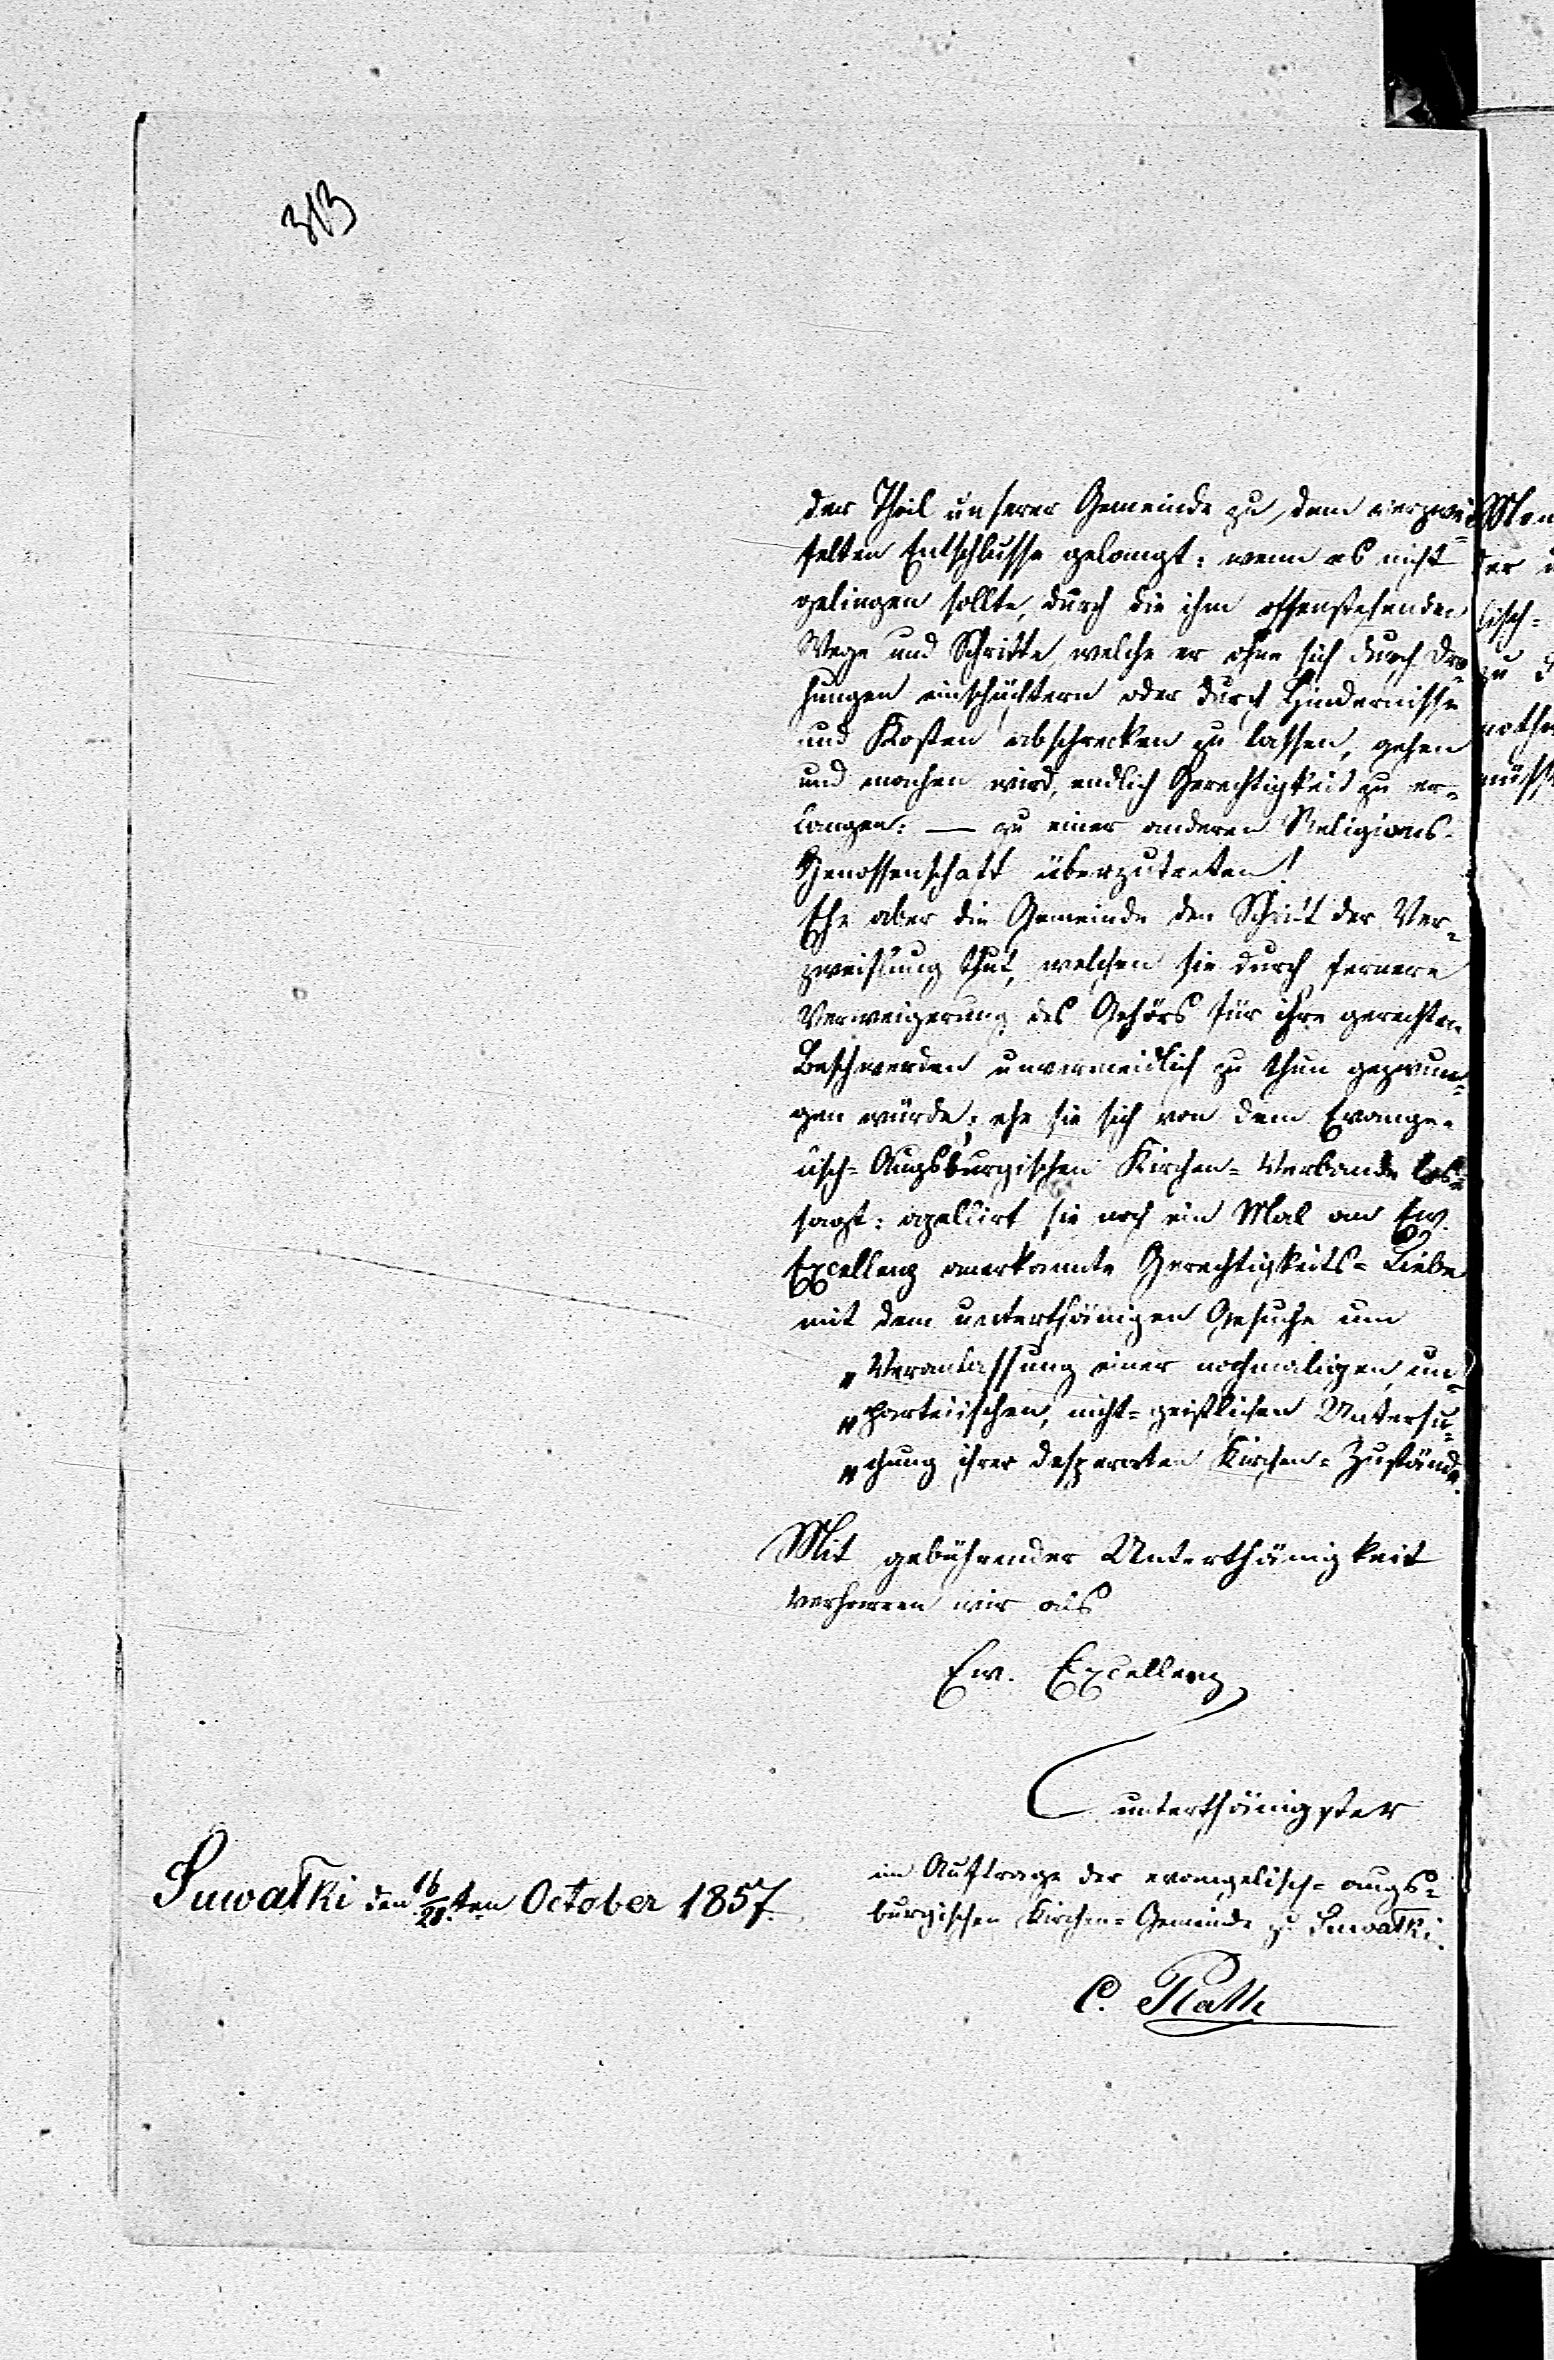 313
der Theil unserer Gemeinde zu dem verzwei=
felten Entschlusse gelangt: wenn es nicht
gelingen sollte, durch die ihm offenstehenden
Wege und Schritte, welche er ohne sich durch Dro=
hungen einschüchtern oder durch Hindernisse
und Kosten abschrecken zu lassen, gehen
und machen wird, endlich Gerechtigkeit zu er=
langen: — zu einer anderen Religions-
Genossenschaft überzutreten!
Ehe aber die Gemeinde den Schritt der Ver=
zweiflung thut, welchen sie durch fernere
Verweigerung des Gehörs für ihre gerechten
Beschwerden unvermeidlich zu thun gezwun=
gen würde; ehe sie sich von dem Evange=
lisch=Augsburgischen Kirchen=Verbande los=
sagt: apellirt sie noch ein Mal an Ew.
Excellenz anerkannte Gerechtigkeits=Liebe
mit dem unterthänigen Gesuche um
„Veranlassung einer nochmaligen, un=
„parteiischen, nicht=geistlichen Untersu=
„chung ihrer desperaten Kirchen=Zustände.
Mit gebührender Unterthänigkeit
verharren wir als
Ew. Excellenz
unterthänigster
im Auftrage der evangelisch=augs=
burgischen Kirchen=Gemeinde zu Suwałki.
Suwałki den 16/28.ten October 1857.
C. Rath